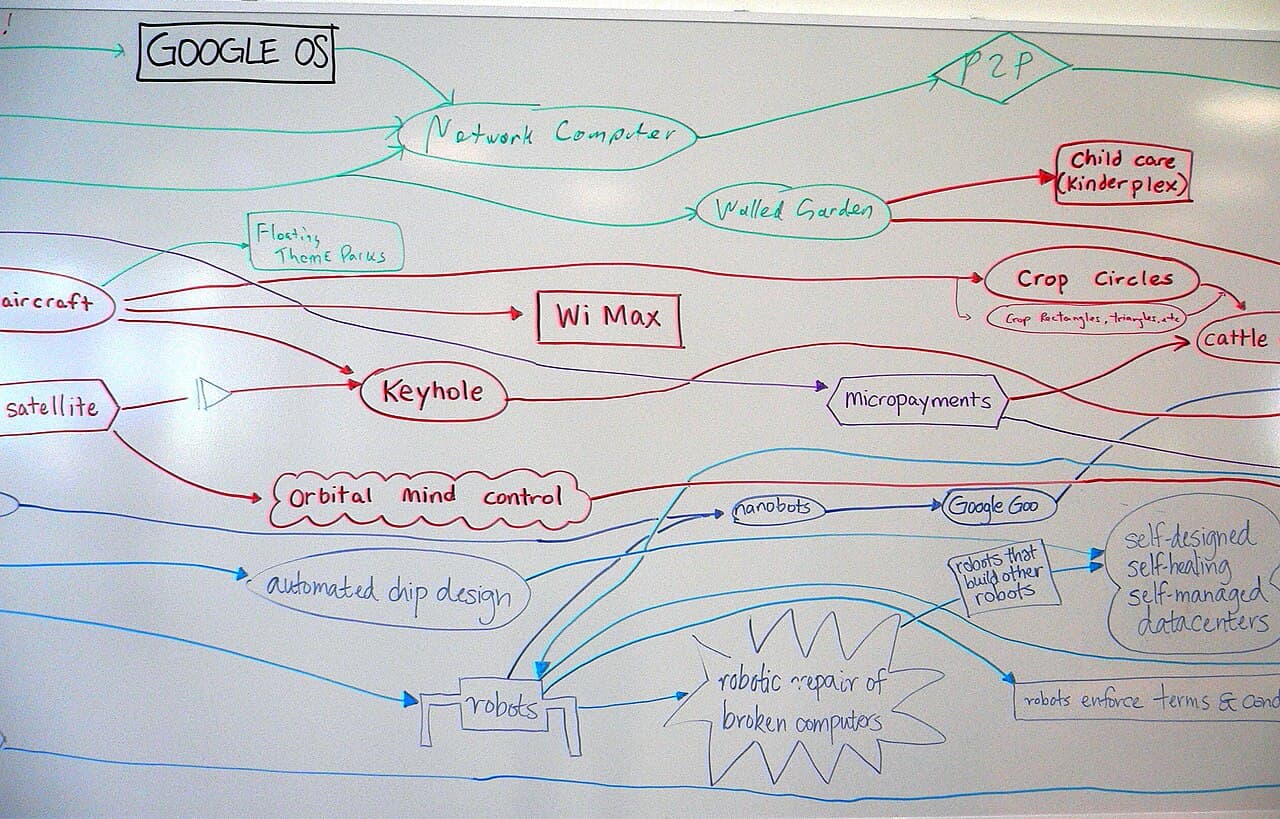 !
GOOGLE OS
P2P
Network Computer
Child care
(Kinderplex)
Walled Garden
Floating
Theme Parks
aircraft
Crop Circles
Crop Rectangles, triangles, etc
Wi Max
cattle
Keyhole
micropayments
satellite
Orbital mind control
nanobots
Google Goo
automated chip design
robots that
build other
robots
self-designed
self-healing
self-managed
datacenters
robots
robotic repair of
broken computers
robots enforce terms & cond